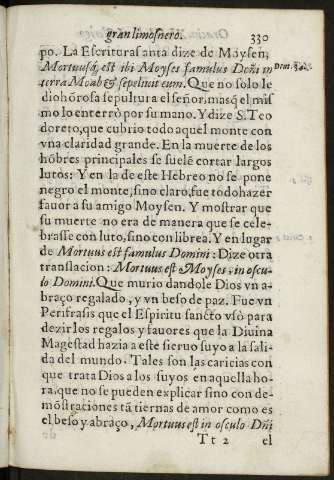 gran limosnero. 330
po. La Escritura santa dize de Moysen;
Mortuusq̃, est ibi Moyses famulus Dñi in
terra Moab & sepeliuit eum. Que no solo le
dio hõrosa sepultura el señor, mas q̃ el mis
mo lo enterrò por su mano. Y dize S. Teo
doreto, que cubrio todo aquel monte con
vna claridad grande. En la muerte de los
hõbres principales se suelẽ cortar largos
lutos: Y en la de este Hebreo no se pone
negro el monte, sino claro, fue todo hazer
fauor a su amigo Moysen. Y mostrar que
su muerte no era de manera que se cele-
brasse con luto, sino con librea. Y en lugar
de Mortuus est famulus Domini: Dize otra
translacion: Mortuus est Moyses, in oscu
lo Domini. Que murio dandole Dios vn a-
braço regalado, y vn beso de paz. Fue vn
Perifrasis que el Espiritu sancto vsò para
dezir los regalos y fauores que la Diuina
Magestad hazia a este sieruo suyo a la sali-
da del mundo. Tales son las caricias con
que trata Dios a los suyos en aquella ho-
ra, que no se pueden explicar sino con de-
mõstraciones tã tiernas de amor como es
el beso y abraço, Mortuus est in osculo Dñi
Tt 2 el